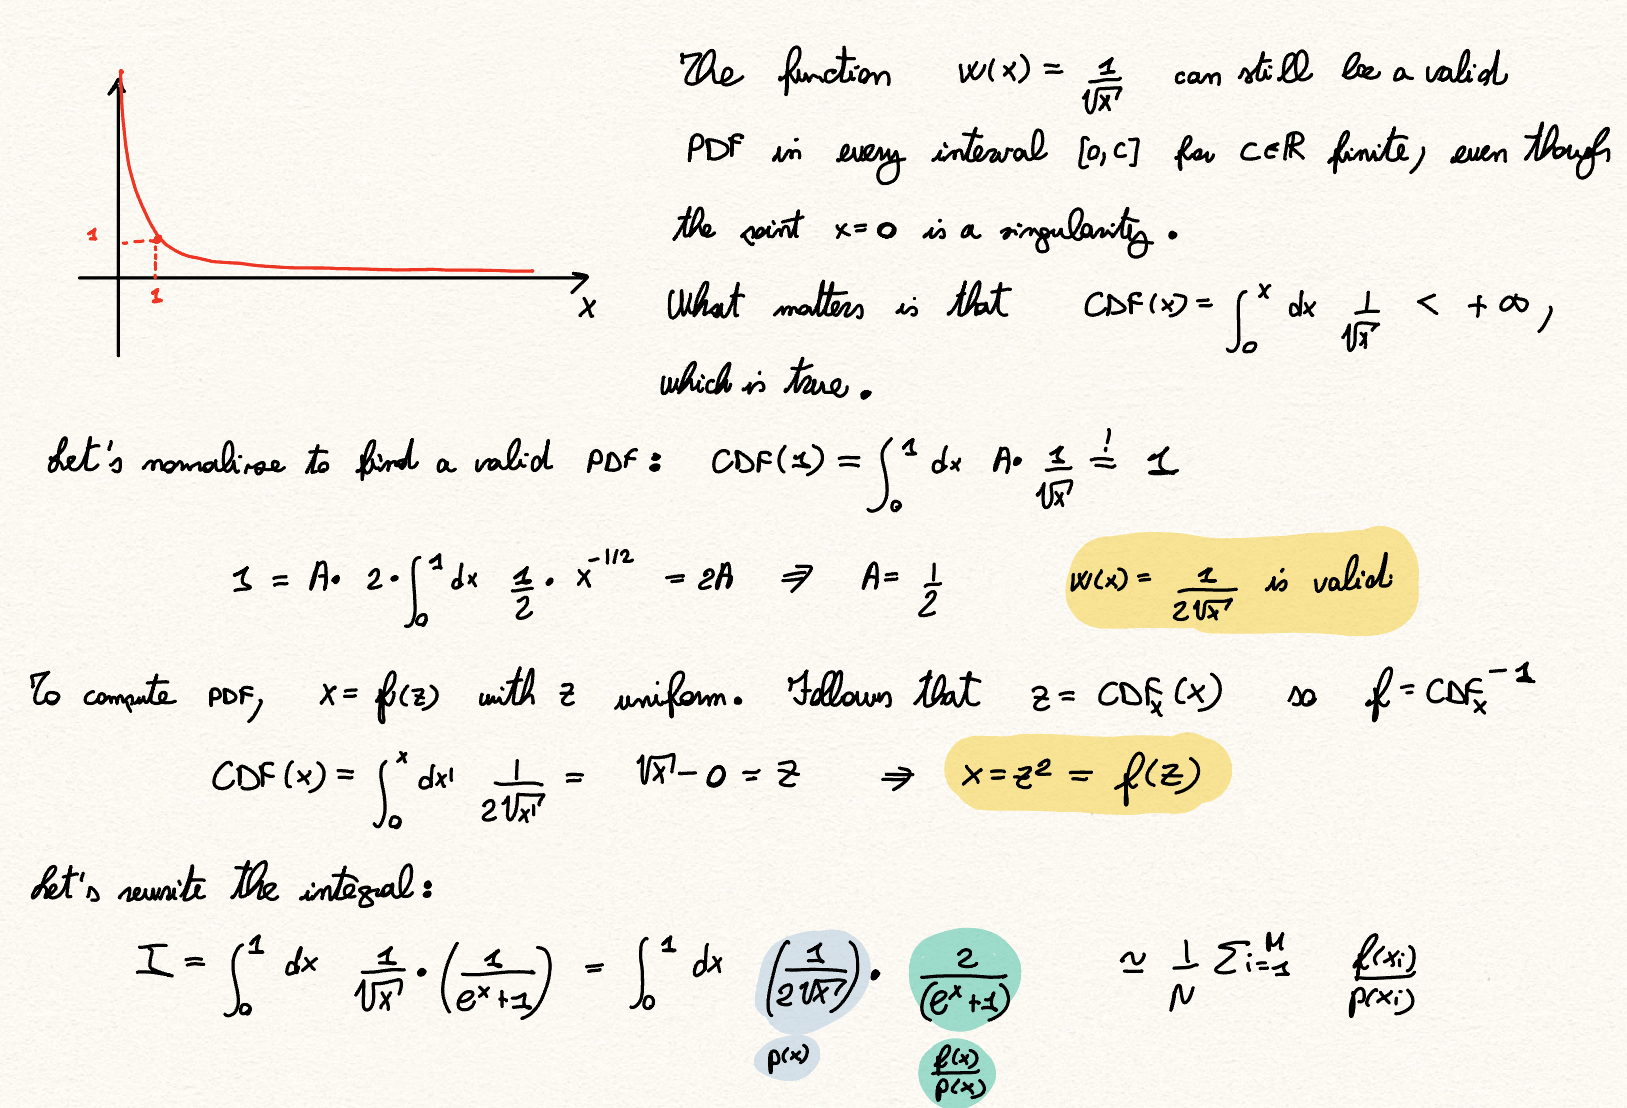 The function w(x) = 1/√x can still be a valid
PDF in every interval [0,C] for C∈ℝ finite, even though
the point x=0 is a singularity.
1
1
x
What matters is that CDF(x) = ∫_0^x dx 1/√x < +∞,
which is true.
Let's normalise to find a valid PDF: CDF(1) = ∫_0^1 dx A· 1/√x =! 1
1 = A· 2· ∫_0^1 dx 1/2 · x^{-1/2} = 2A ⇒ A = 1/2 w(x) = 1/(2√x) is valid
To compute PDF, x = f(z) with z uniform. Follows that z = CDF_x(x) so f = CDF_x^{-1}
CDF(x) = ∫_0^x dx' 1/(2√x') = √x - 0 = z ⇒ x = z² = f(z)
Let's rewrite the integral:
I = ∫_0^1 dx 1/√x · (1/(e^x+1)) = ∫_0^1 dx (1/(2√x)) · 2/(e^x+1) ≃ 1/N Σ_{i=1}^M f(xi)/p(xi)
p(x) f(x)/p(x)